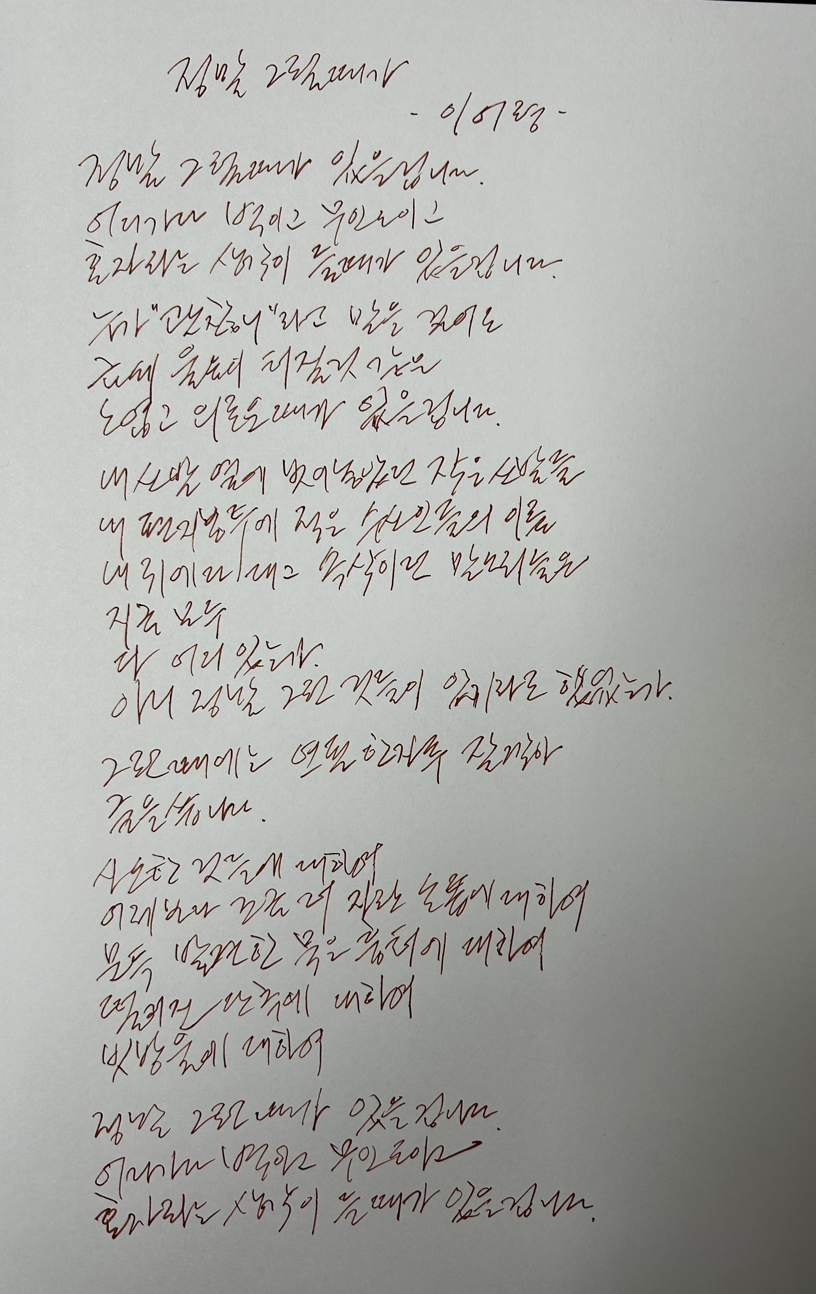 정말 그럴때가
- 이어령 -
정말 그럴때가 있을겁니다.
어디가나 벽이고 무인도이고
혼자라는 생각이 들때가 있을겁니다.
누가 "괜찮니"라고 말을 걸어도
금세 울음이 터질것 같은
노엽고 외로운때가 있을겁니다.
내 신발 옆에 벗어놓았던 작은 신발들
내 편지봉투에 적은 수신인들의 이름
내 귀에다 대고 속삭이던 말소리들은
지금 모두
다 어디 있는가.
아니 정말 그런 것들이 있기라도 했었는가.
그런때에는 연필 한자루 잘 깎아
글을 씁니다.
사소한 것들에 대하여
어제보다 조금 더 자란 손톱에 대하여
문득 발견한 묵은 흉터에 대하여
떨어진 단추에 대하여
빗방울에 대하여
정말 그런 때가 있을겁니다.
어디가나 벽이고 무인도이고
혼자라는 생각이 들때가 있을겁니다.